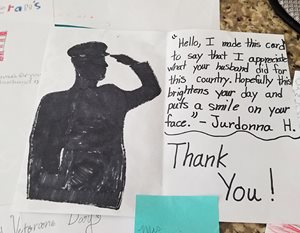 eran's
"Hello, I made this card
to say that I appreciate
what your husband did for
this country. Hopefully this
brightens your day and
puts a smile on your
face." - Jurdonna H.
Thank
You!
Veterans Day